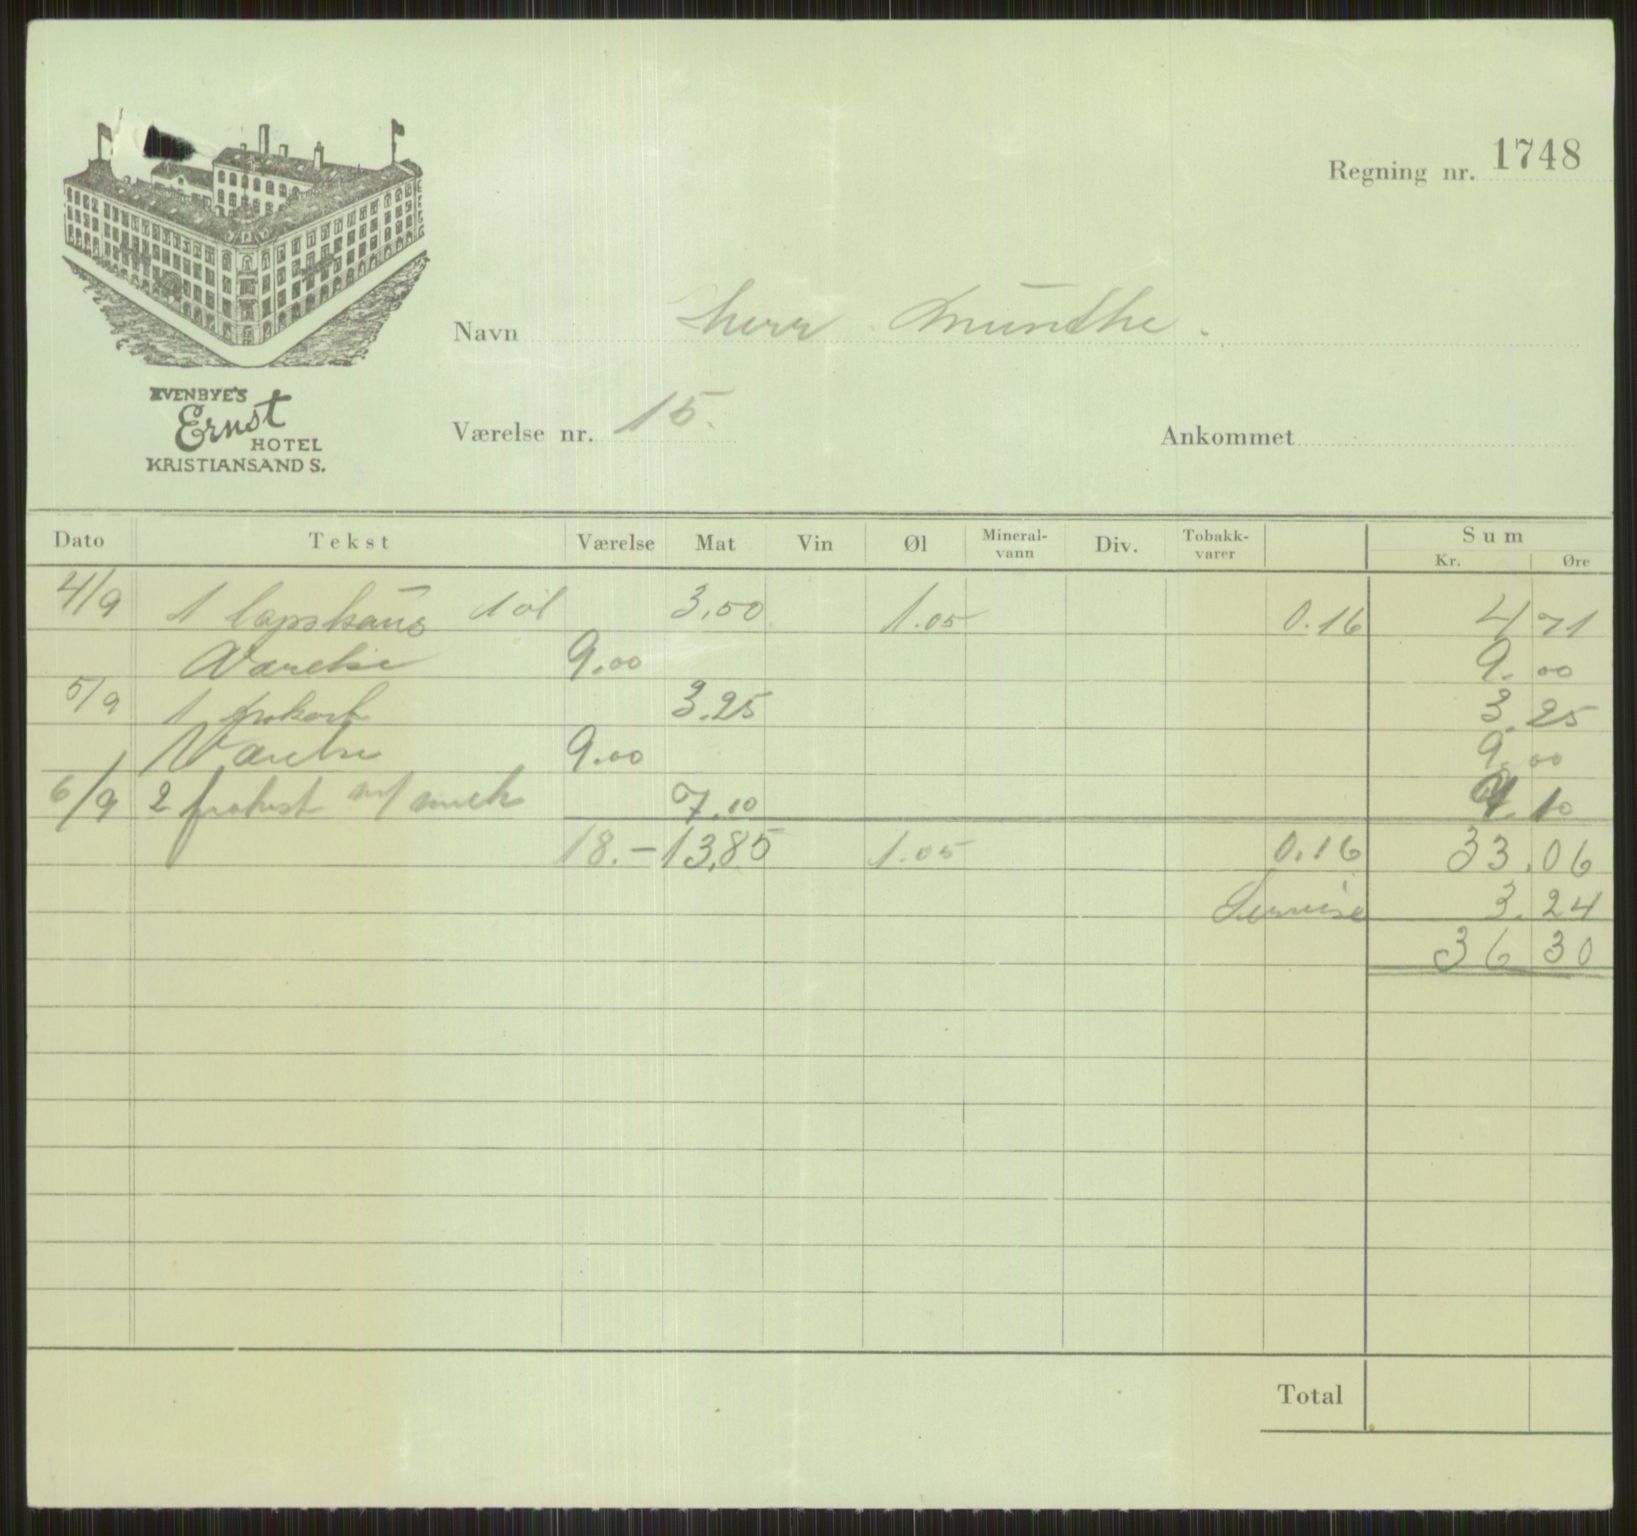 Regning nr. 1748
Navn Herr Munthe.
EVENBYE'S
Ernst
HOTEL
KRISTIANSAND S.
Værelse nr. 15. Ankommet
Dato Tekst Værelse Mat Vin Øl Mineral-vann Div. Tobakk-varer Sum
Kr. Øre
4/9 1 lapskaus 1 øl 3,50 1.05 0.16 4 71
Værelse 9.00 9. 00
5/9 1 frokost 3.25 3. 25
Værelse 9.00 9. 00
6/9 2 frokost m/ melk 7.10 7. 10
18.- 13,85 1.05 0.16 33.06
Servise 3. 24
36 30
Total